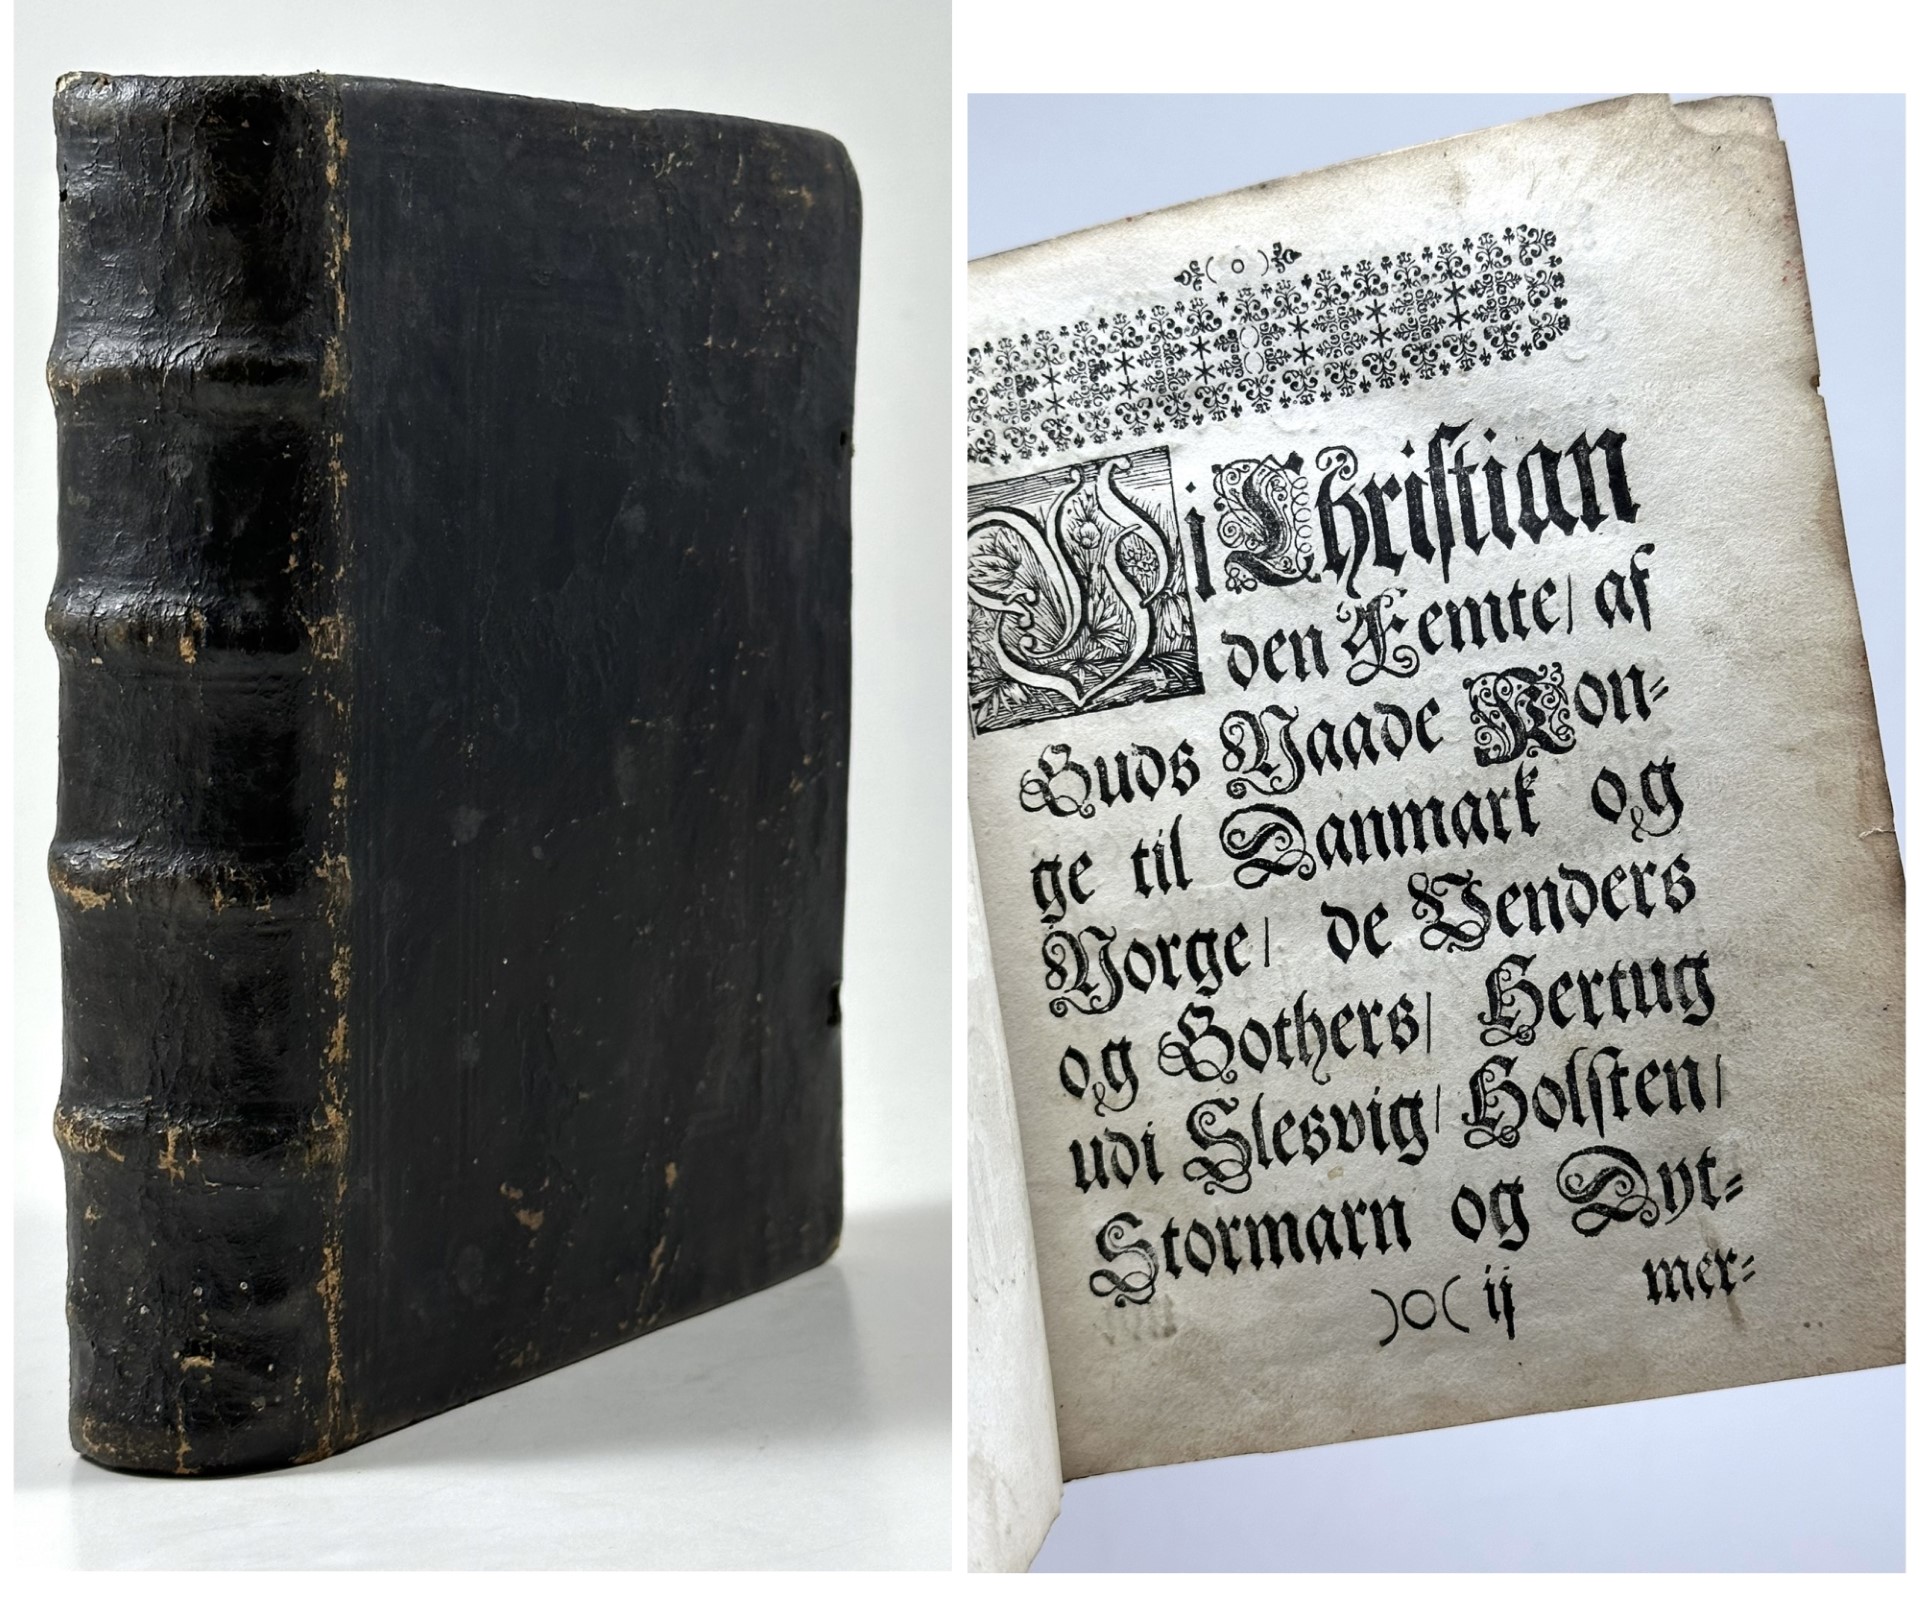 Vi Christian
den Femte/ af
Guds Naade Kon-
ge til Danmark og
Norge/ de Venders
og Gothers/ Hertug
udi Slesvig/ Holsten/
Stormarn og Dyt-
)O( ij mer-